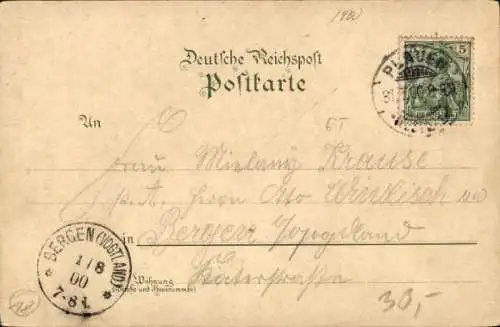 1900
Deutsche Reichspost
Postkarte
5
PLAUEN
An
6T
Frau Krause
p. A. Herrn Otto
in Bergen Vogtland
BERGEN (VOGTLAND)
1/8
00
7-8 V.
Wohnung
(Straße und Hausnummer)
30,-